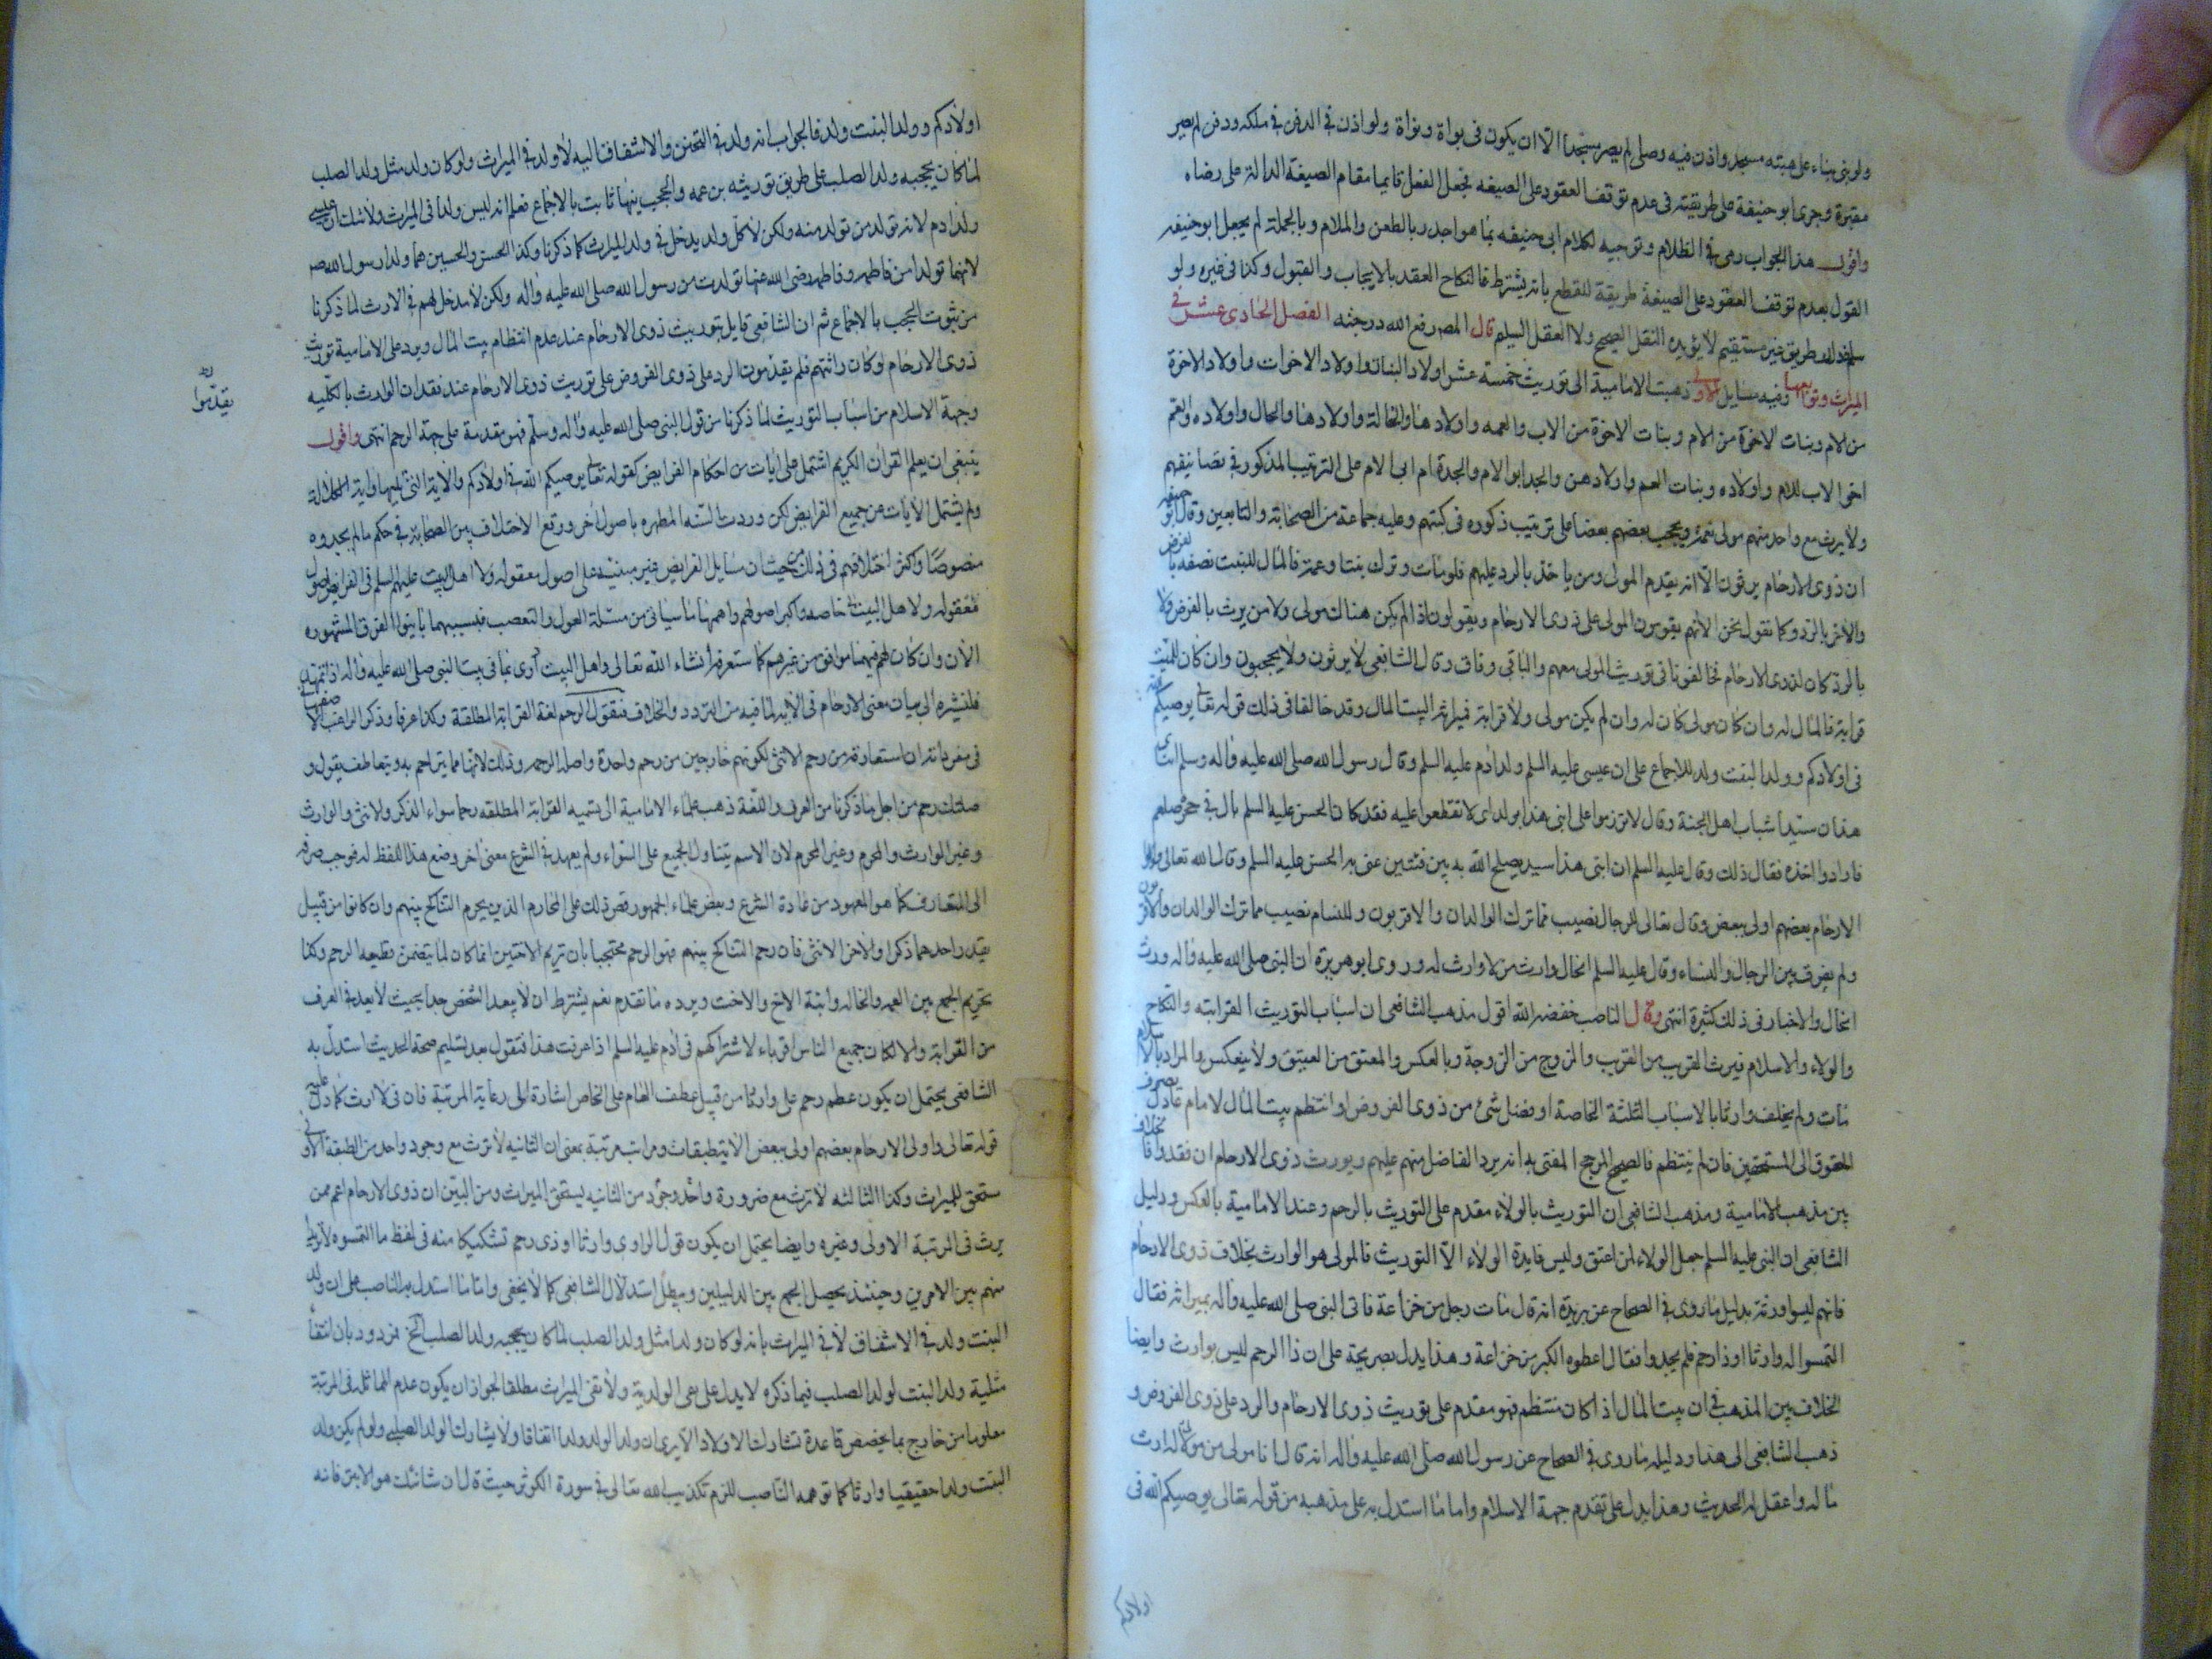 ولو بنى بناء على هيئة مسجد واذن فيه وصلى لم يصر مسجدا الا ان يكون فى بواة ونواة ولو اذن فى الدفن فى ملكه ودفن لم يصر
مقبرة وجرى ابو حنيفة على طريقته فى عدم توقف العقود على الصيغه فجعل الفعل قايما مقام الصيغة الدالة على رضاه
واقول هذا الجواب رمى فى الظلام وتوجيه لكلام ابى حنيفه بما هو اجدر بالطعن والملام وبالجملة لم يجعل ابو حنيفه
القول بعدم توقف العقود على الصيغة طريقة للقطع بانه يشترط فى النكاح العقد بالايجاب والقبول وكذا فى غيره ولو
سلم فذلك طريق غير مستقيم لا يؤيده النقل الصحيح ولا العقل السليم قال المصـ رفع الله درجته الفصل الحادى عشر فى
الميراث وتوابعها وفيه مسايل الاولى ذهبت الامامية الى توريث خمسة عشر اولاد البنات واولاد الاخوات واولاد الاخوة
من الام وبنات الاخوة من الام وبنات الاخوة من الاب والعمه واولادها والخالة واولادها والخال واولاده والعم
اخو الاب للام واولاده وبنات العم واولادهن والجد ابو الام والجدة ام ابى الام على الترتيب المذكور فى تصانيفهم
ولا يرث مع واحد منهم مولى نعمة ويحجب بعضهم بعضا على ترتيب ذكوره فى كتبهم وعليه جماعة من الصحابة والتابعين وقال ابو حنيفه
ان ذوى الارحام يرثون الا انه يقدم المولى ومن ياخذ بالرد عليهم فلو مات وترك بنتا وعمة فالمال للبنت نصفه بالفرض
والاخر بالرد وكما نقول نحن الا انهم يقدمون المولى على ذوى الارحام ويقولون اذا لم يكن هناك مولى ولا من يرث بالفرض ولا
بالرد كان لذوى الارحام فخالفونا فى توريث المولى معهم والباقى وفاق وقال الشافعى لا يرثون ولا يحجبون وان كان للميت
قرابة فالمال له وان كان مولى كان له وان لم يكن مولى ولا قرابة فميراثه لبيت المال وقد خالفا فى ذلك قوله تعالى يوصيكم الله
فى اولادكم وولد البنت ولد للاجماع على ان عيسى عليه السلم ولد ادم عليه السلم وقال رسول الله صلى الله عليه واله وسلم ابناى
هذان سيدا شباب اهل الجنة وقال لا تزرموا على ابنى هذا بوله اى لا تقطعوا عليه فقد كان الحسن عليه السلم بال فى حجره صلعم
فارادوا اخذه فقال ذلك وقال عليه السلم ان ابنى هذا سيد يصلح الله به بين فئتين عنى به الحسن عليه السلم وقال الله تعالى واولوا
الارحام بعضهم اولى ببعض وقال تعالى للرجال نصيب مما ترك الوالدان والاقربون وللنساء نصيب مما ترك الوالدان والاقربون
ولم يفرق بين الرجال والنساء وقال عليه السلم الخال وارث من لا وارث له وروى ابو هريرة ان النبى صلى الله عليه واله ورث
الخال والاخبار فى ذلك كثيرة انتهى وقال الناصب خفضه الله اقول مذهب الشافعى ان اسباب التوريث القرابته والنكاح
والولاء والاسلام فيرث القريب من القريب والزوج من الزوجة وبالعكس والمعتق من العتيق ولا ينعكس والمراد بالاسلام
مات ولم يخلف وارثا بالاسباب الثلثة الخاصة او فضل شئ من ذوى الفروض او انتظم بيت المال لامام عادل يصرف
الحقوق الى المستحقين فان لم ينتظم فالصحيح المرجح المفتى به انه يرد الفاضل منهم عليهم ويورث ذوى الارحام ان فقدوا فالخلاف
بين مذهب الامامية ومذهب الشافعى ان التوريث بالولاء مقدم على التوريث بالرحم وعند الامامية بالعكس ودليل
الشافعى ان النبى عليه السلم جعل الولاء لمن اعتق وليس فايدة الولاء الا التوريث فالمولى هو الوارث بخلاف ذوى الارحام
فانهم ليسوا ورثة بدليل ما روى فى الصحاح عن بريدة انه قال مات رجل من خزاعة فاتى النبى صلى الله عليه واله بميراثه فقال
التمسوا له وارثا او ذا رحم فلم يجدوا فقال اعطوه الكبر من خزاعة وهذا يدل بصريحه على ان ذا الرحم ليس بوارث وايضا
الخلاف بين المذهب فى ان بيت المال اذا كان منتظم فهو مقدم على توريث ذوى الارحام والرد على ذوى الفروض و
ذهب الشافعى الى هذا ودليله ما روى فى الصحاح عن رسول الله صلى الله عليه واله انه قال انا مولى من لا مولى له ارث
ماله واعقل له الحديث وهذا يدل على تقدم جهة الاسلام واما ما استدل به على مذهبه من قوله تعالى يوصيكم الله فى
اولادكم
اولادكم وولد البنت ولد فالجواب انه ولد فى التحنن والاشفاق اليه لا ولد فى الميراث ولو كان ولد مثل ولد الصلب
لما كان يحجبه ولد الصلب على طريق توريثه بن عمه والحجب ينهما ثابت بالاجماع فعلم انه ليس ولدا فى الميراث ولا شك ان عيسى
ولد ادم لانه تولد من تولد منه ولكن لا كل ولد يدخل فى ولد الميراث كما ذكرنا وكذا الحسن والحسين هما ولدا رسول الله صـ
لانهما تولدا من فاطمه وفاطمه رضى الله عنها تولدت من رسول الله صلى الله عليه واله ولكن لا مدخل لهم فى الارث لما ذكرنا
من ثبوت الحجب بالاجماع ثم ان الشافعى قايل بتوريث ذوى الارحام عند عدم انتظام بيت المال ويرد على الامامية توريث
ذوى الارحام لو كان راثتهم فلم يقدمون الرد على ذوى الفروض على توريث ذوى الارحام عند فقدان الوارث بالكليه
يقدموا
وجهة الاسلام من اسباب التوريث لما ذكرنا من قول النبى صلى الله عليه واله وسلم فهو مقدمة على جهة الرحم انتهى واقول
ينبغى ان يعلم القران الكريم اشتمل على ايات من احكام الفرايض كقوله تعالى يوصيكم الله فى اولادكم والاية التى يليها واية الكلالة
ولم يشتمل الايات عن جميع الفرايض لكن وردت السنه المطهره باصول اخر ووقع الاختلاف بين الصحابة فى حكم ما لم يجدوه
منصوصا واكثر اختلافهم فى ذلك من حيث ان مسايل الفرايض غير مبنيه على اصول معقوله ولا اهل البيت عليهم السلم فى الفرايض اصول
معقوله ولاهل البيت خاصه واكبر اصولهم واهمها ما سياتى من مسئلة العول والتعصب فبسببهما باينوا الفرق المشهوره
الان وان كان لهم فيهما موافق من غيرهم كما ستعرفه انشاء الله تعالى واهل البيت ادرى بما فى بيت النبى صلى الله عليه واله
فلنشير الى بيان معنى الارحام فى الاية لما فيه من التردد والخلاف فنقول الرحم لغة القرابة المطلقة وكذا عرفا وذكر الراغب الاصفهانى
فى مفرداته ان استعارة من رحم الانثى لكونهم خارجين من رحم واحدة واصله الرحمه وذلك لانها مما يتراحم به ويتعاطف يقول و
صلتك رحم من اجل ما ذكرنا من العرف واللغة ذهب علماء الامامية الى تسميه القرابة المطلقه رحما سواء الذكر والانثى والوارث
وغير الوارث والمحرم وغير المحرم لان الاسم يتناول الجميع على السواء ولم يعهد فى الشرع معنى اخر وضع هذا اللفظ له فوجب صرفه
الى المتعارف كما هو المعهود من عادة الشرع وبعض علماء الجمهور قصر ذلك على المحارم الذين يحرم التناكح بينهم وان كانوا من قبيل
يقدر احدهما ذكرا والاخر الانثى فان رحم التناكح بينهم فهو الرحم محتجبا بان تحريم الاختين انما كان لما يتضمن قطيعه الرحم وكذا
تحريم الجمع بين العمه والخاله وابنة الاخ والاخت ويرده ما تقدم نعم يشترط ان لا يبعد الشخص جدا بحيث لا يعد فى العرف
من القرابة والا لكان جميع الناس اقرباء لاشتراكهم فى ادم عليه السلم اذا عرفت هذا فنقول بعد تسليم صحة الحديث استدل به
الشافعى يحتمل ان يكون عطف رحم على وارثا من قبيل عطف العام على الخاص اشارة الى رعاية المرتبة فان فى الارث كما دل عليه
قوله تعالى واولى الارحام بعضهم اولى ببعض الاية طبقات ومراتب مرتبة بمعنى ان الثانيه لا ترث مع وجود واحد من الطبقة الاولى
ستحق للميراث وكذا الثالثه لا ترث مع ضرورة واحد وجود من الثانيه ليستحق الميراث ومن البين ان ذوى الارحام اعم ممن
يرث فى المرتبة الاولى وغيره وايضا يحتمل ان يكون قول الراوى وارثا او ذى رحم تشكيكا منه فى لفظ ما التمسوه
منهم بين الامرين وحينئذ يحصل الجمع بين الدليلين ويبطل استدلال الشافعى كما لا يخفى واما ما استدل به الناصب على ان ولد
البنت ولد فى الاشفاق لا فى الميراث بانه لو كان ولدا مثل ولد الصلب لما كان يحجبه ولد الصلب الخ فمردود بان انتفاء
مثلية ولد البنت لولد الصلب فيما ذكره لا يدل على نفى الولدية ولا نفى الميراث مطلقا لجواز ان يكون عدم المماثله فى المرتبة
معلوما من خارج بما يخصص قاعدة تشارك الاولاد الا يرى ان ولد الولد ولدا اتفاقا ولا يشارك الولد الصلبى ولو لم يكن ولد
البنت ولدا حقيقيا وارثا كما توهمه الناصب للزم تكذيب الله تعالى فى سورة الكوثر حيث قال ان شانئك هو الابتر فانه